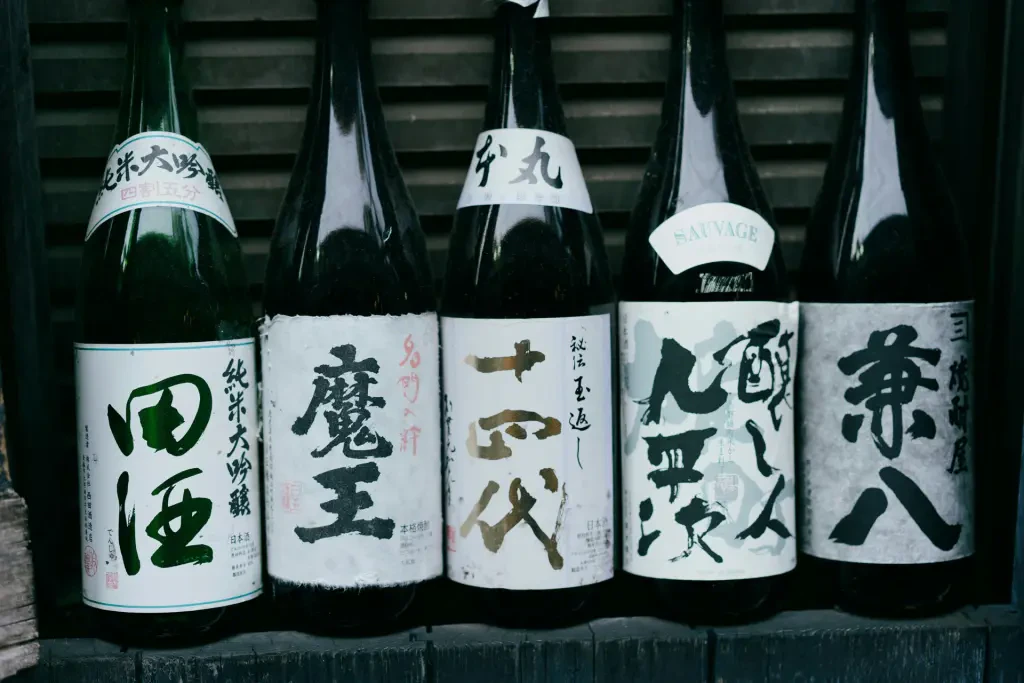 純米大吟醸
四割五分
田酒
純米大吟醸
日本酒
でんしゅ
魔王
名門の粋
本格焼酎
本丸
十四代
秘伝玉返し
日本酒
SAUVAGE
醸し人
九平次
兼八